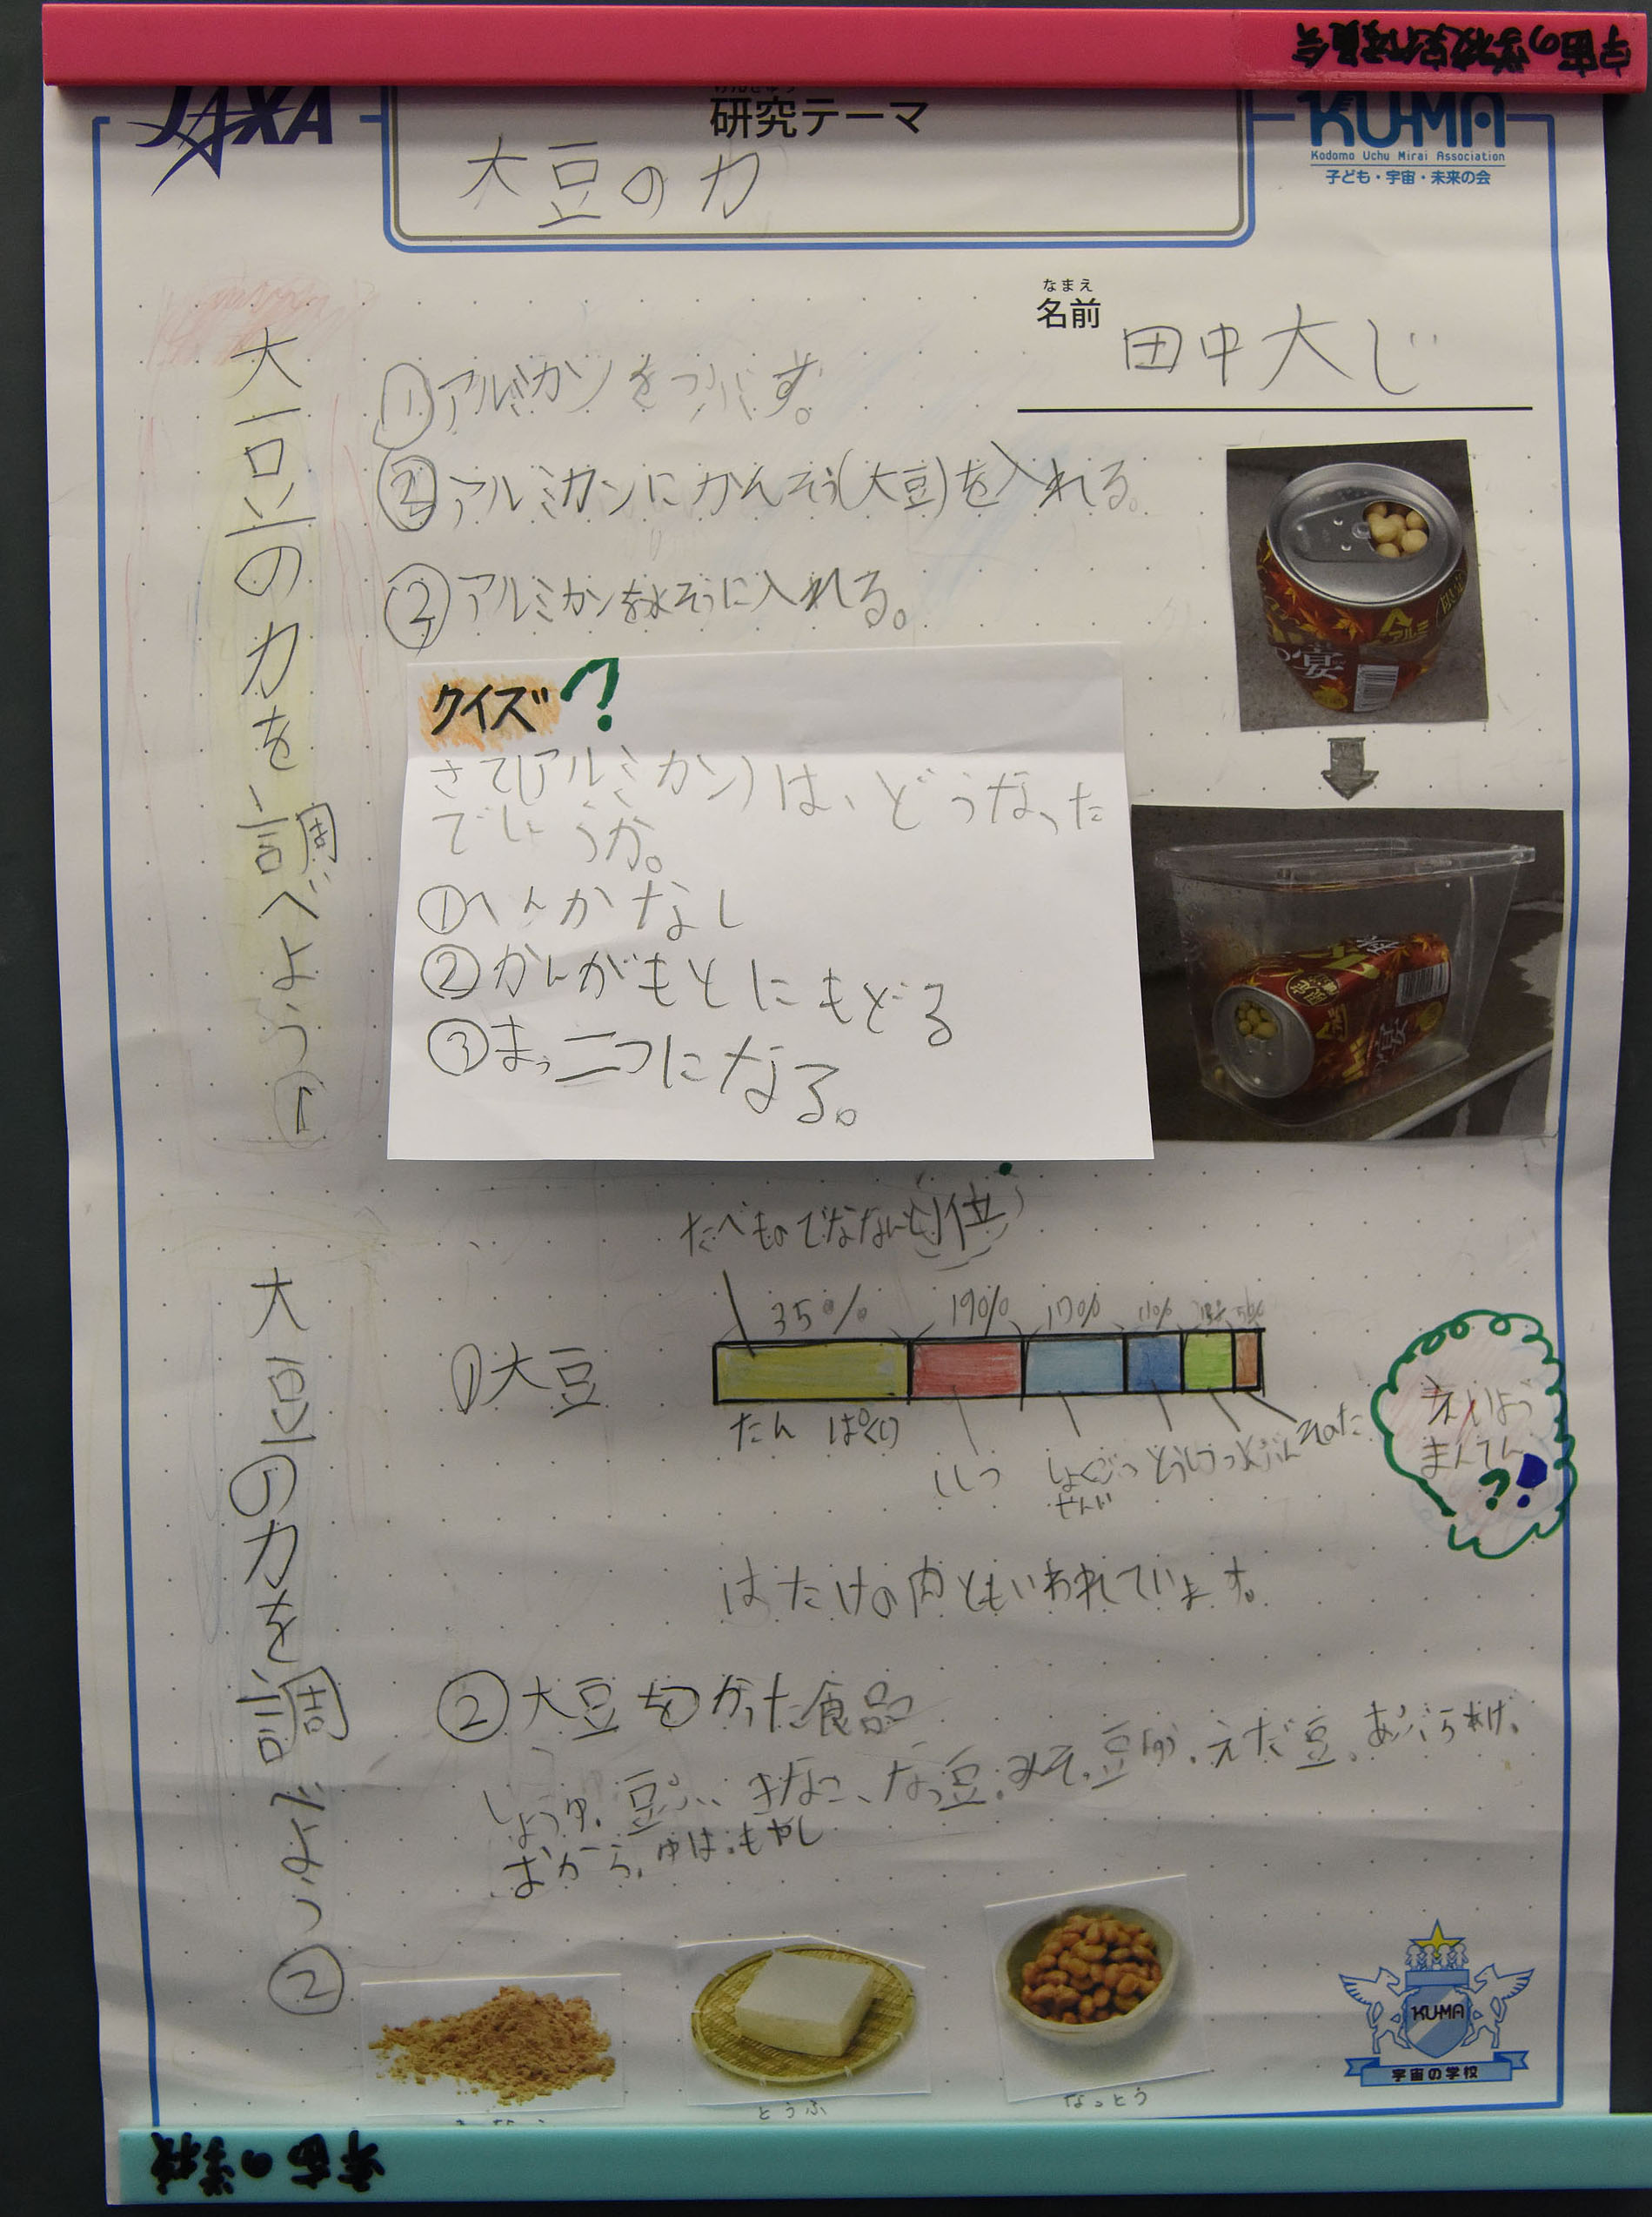 宇宙の学校実行委員会
JAXA
研究テーマ
大豆の力
KU-MA
Kodomo Uchu Mirai Association
子ども・宇宙・未来の会
なまえ
名前
田中大じ
大豆の力を調べよう①
①アルミカンをつぶす。
②アルミカンにかんそう(大豆)を入れる。
②アルミカンを水そうに入れる。
クイズ?
さて(アルミカン)は、どうなった
でしょうか。
①へんかなし
②かんがもとにもどる
③まっ二つになる。
アルミ
宴
大豆の力を調べよう②
たべものでなんと1位
①大豆
35% 19% 17% 11%
たんぱく
ししつ
しょくぶつ
せんい
とうしつ
その他
えいよう
まんてん
?!
はたけの肉ともいわれています。
②大豆をつかった食品
しょうゆ、豆ふ、きなこ、なっ豆、みそ、豆にゅう、えだ豆、あぶらあげ、
おから、ゆば、もやし
とうふ
なっとう
KU-MA
宇宙の学校
宇宙の学校